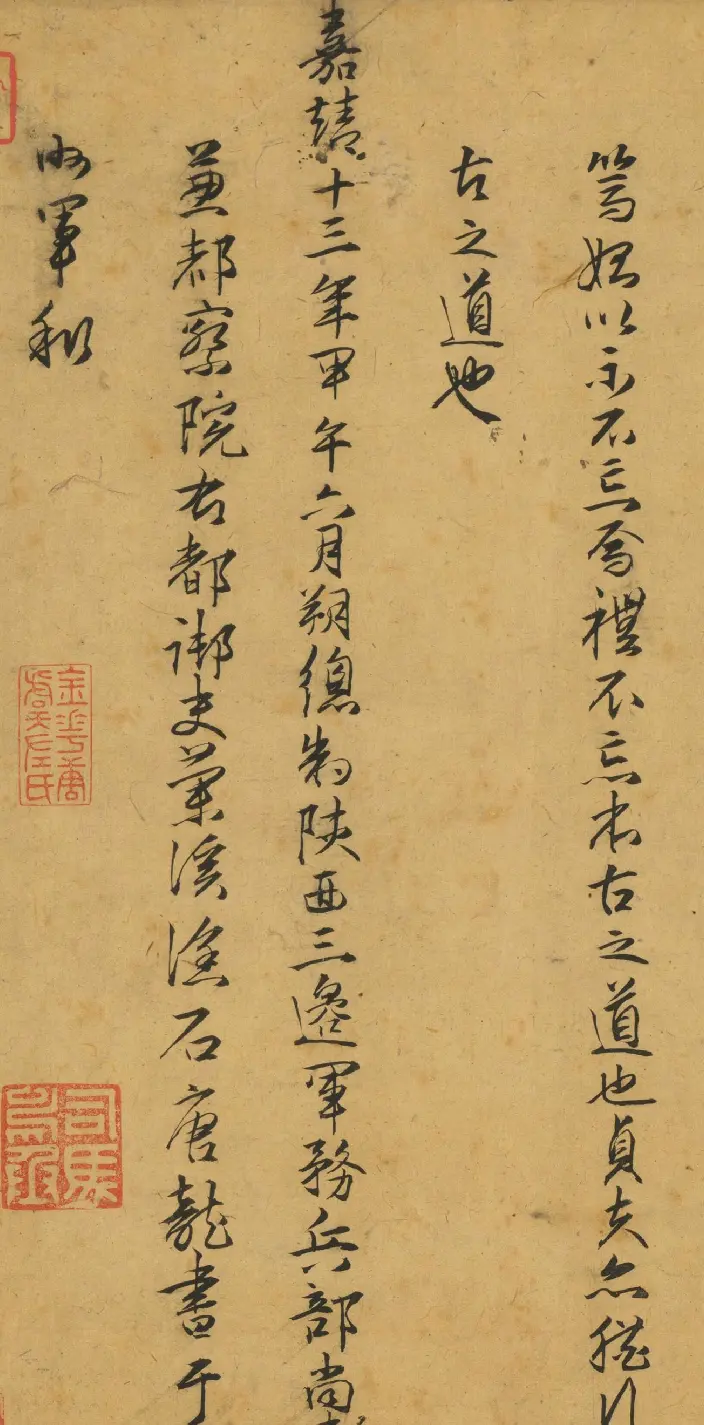 篤姻以示不忘焉禮不忘本古之道也貞夫亦猶行
古之道也
嘉靖十三年甲午六月朔總制陝西三邊軍務兵部尚
兼都察院右都御史蘭溪漁石唐龍書于
軍